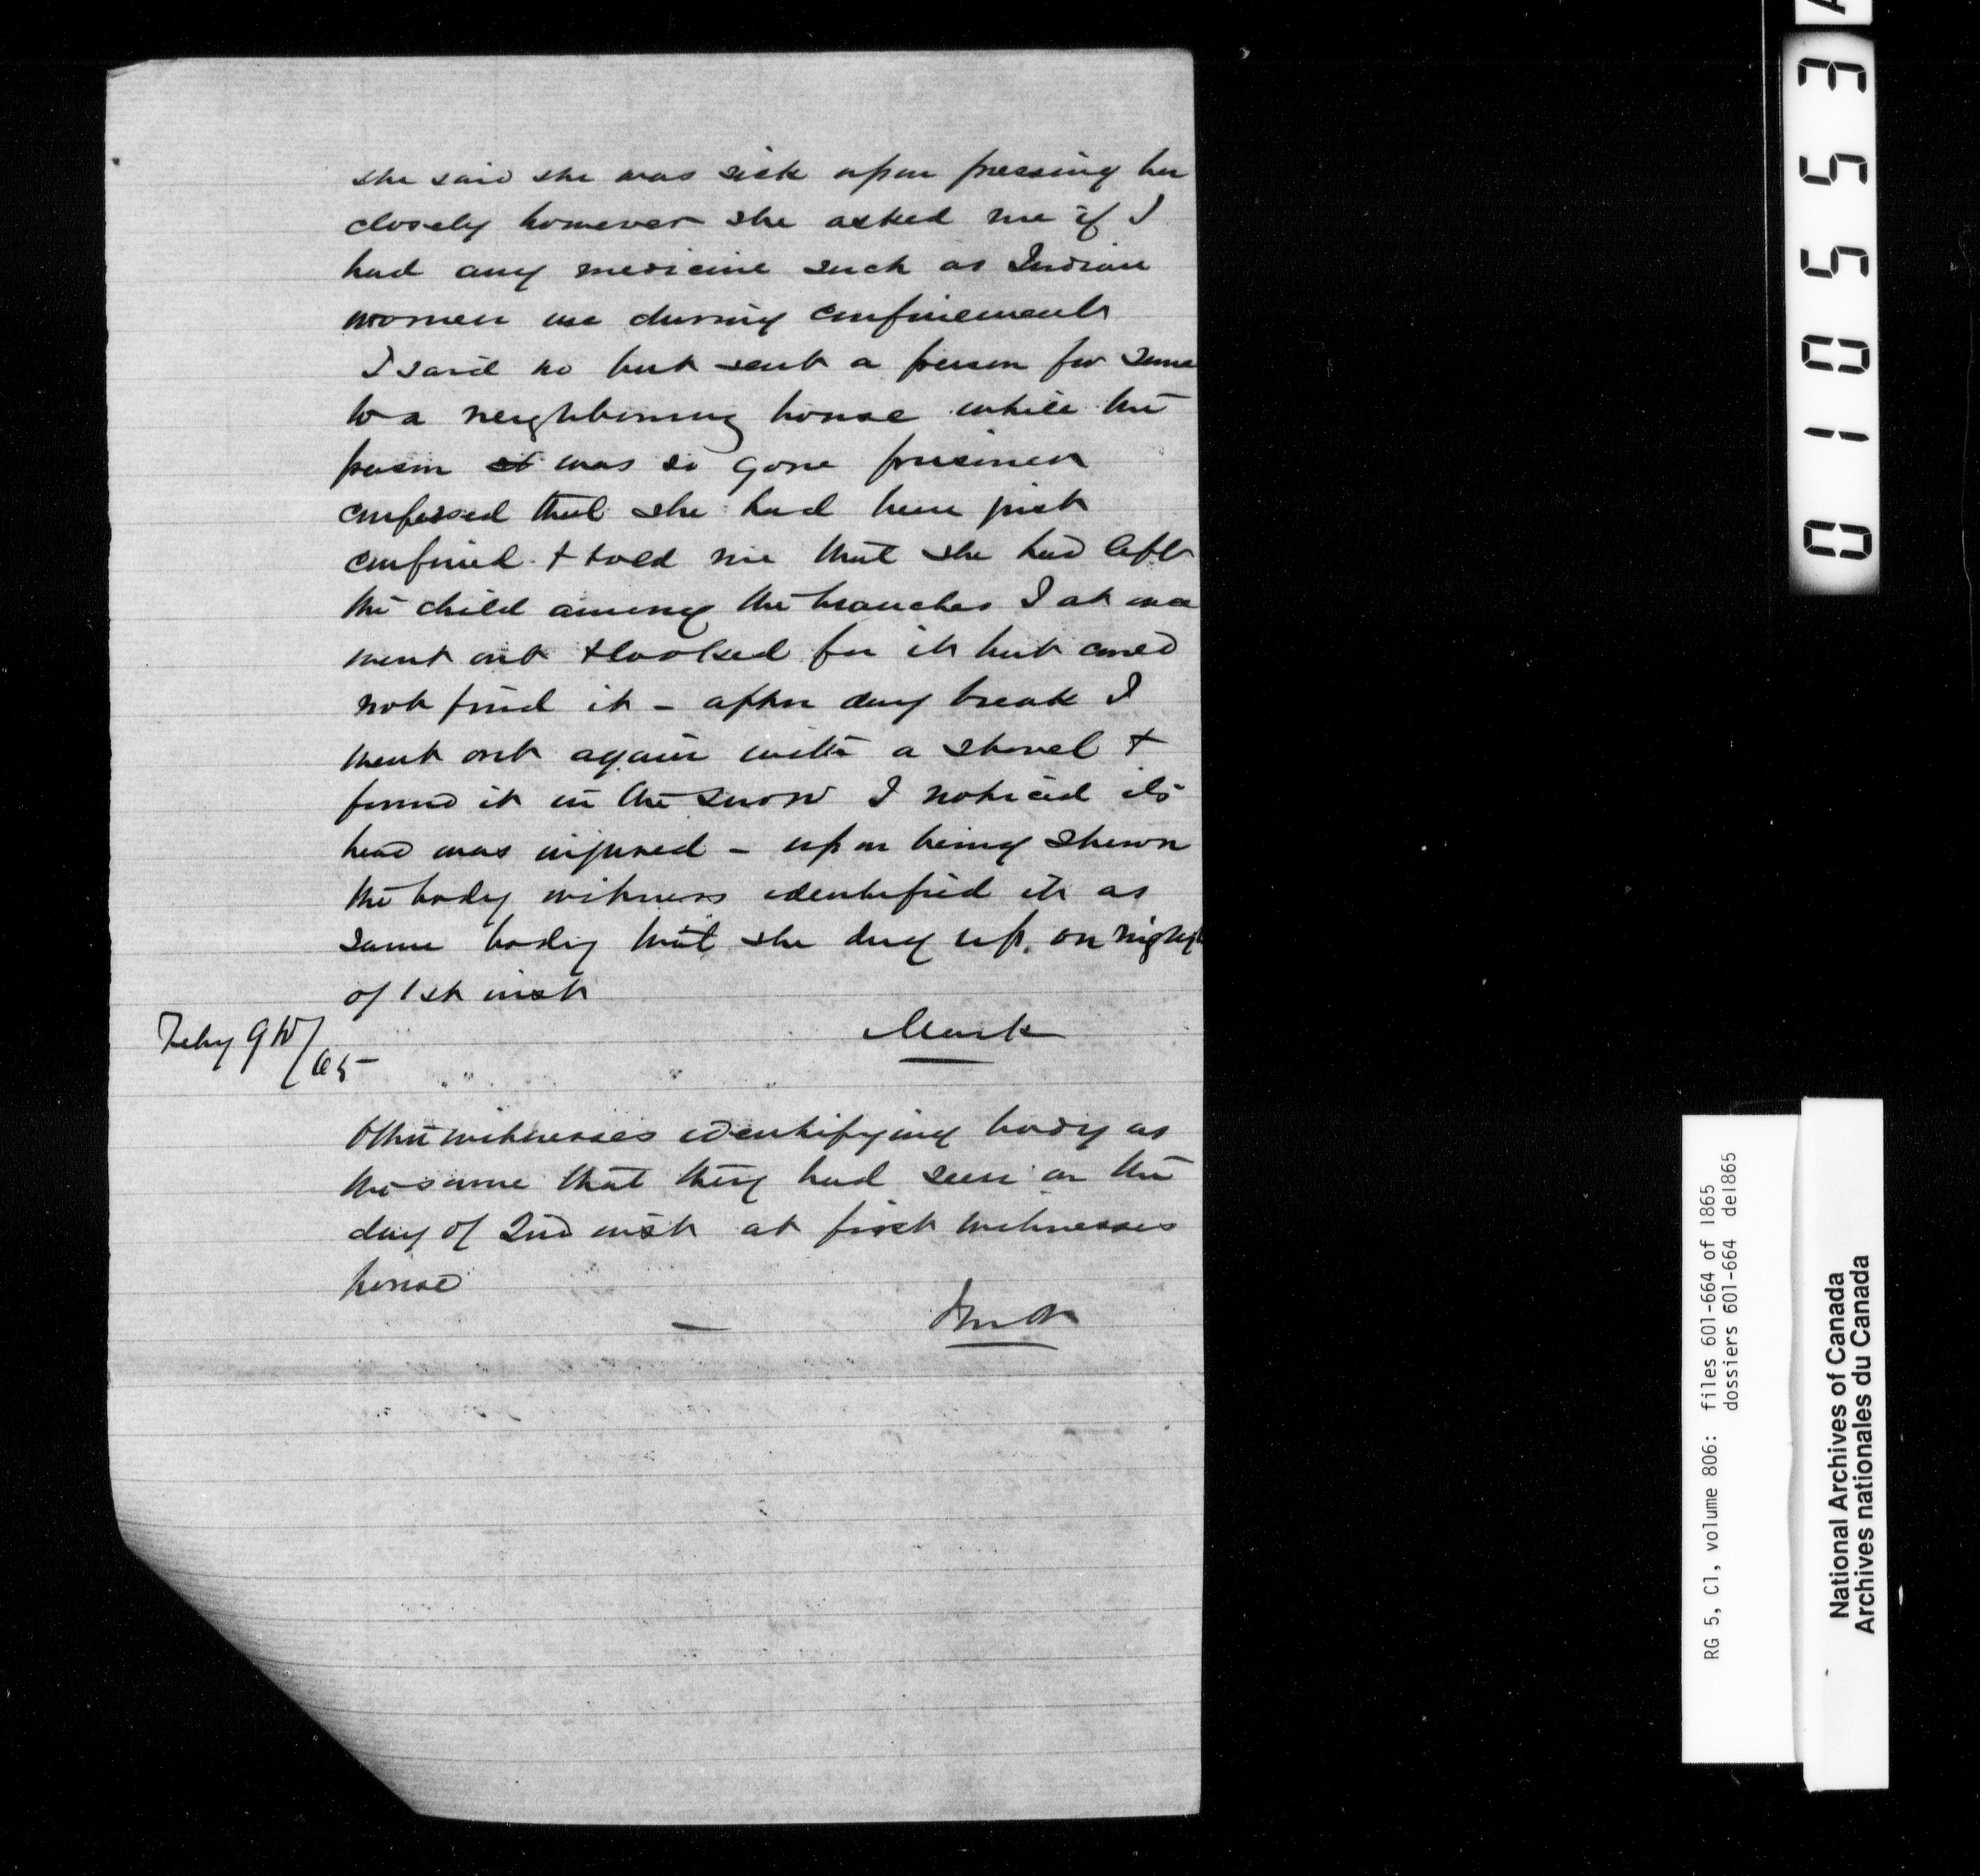 she said she was sick upon pressing her
closely however she asked me if I
had any medicine such as Indian
women use during confinements
I said no but sent a person for some
to a neighbouring house while the
person was so gone prisoner
confessed that she had been just
confined & told me that she had left
the child among the branches I at once
went out & looked for it but could
not find it – after day break I
went out again with a shovel &
found it in the snow I noticed its
head was injured – upon being shewn
the body witness identified it as
same body that she dug up on night
of 1st inst
Feby 9th/65
Mark
Other witnesses identifying body as
the same that they had seen on the
day of 2nd inst at first witnesses
house
0 1 0 5 5 3
RG 5, C1, volume 806: files 601-664 of 1865
dossiers 601-664 de1865
National Archives of Canada
Archives nationales du Canada